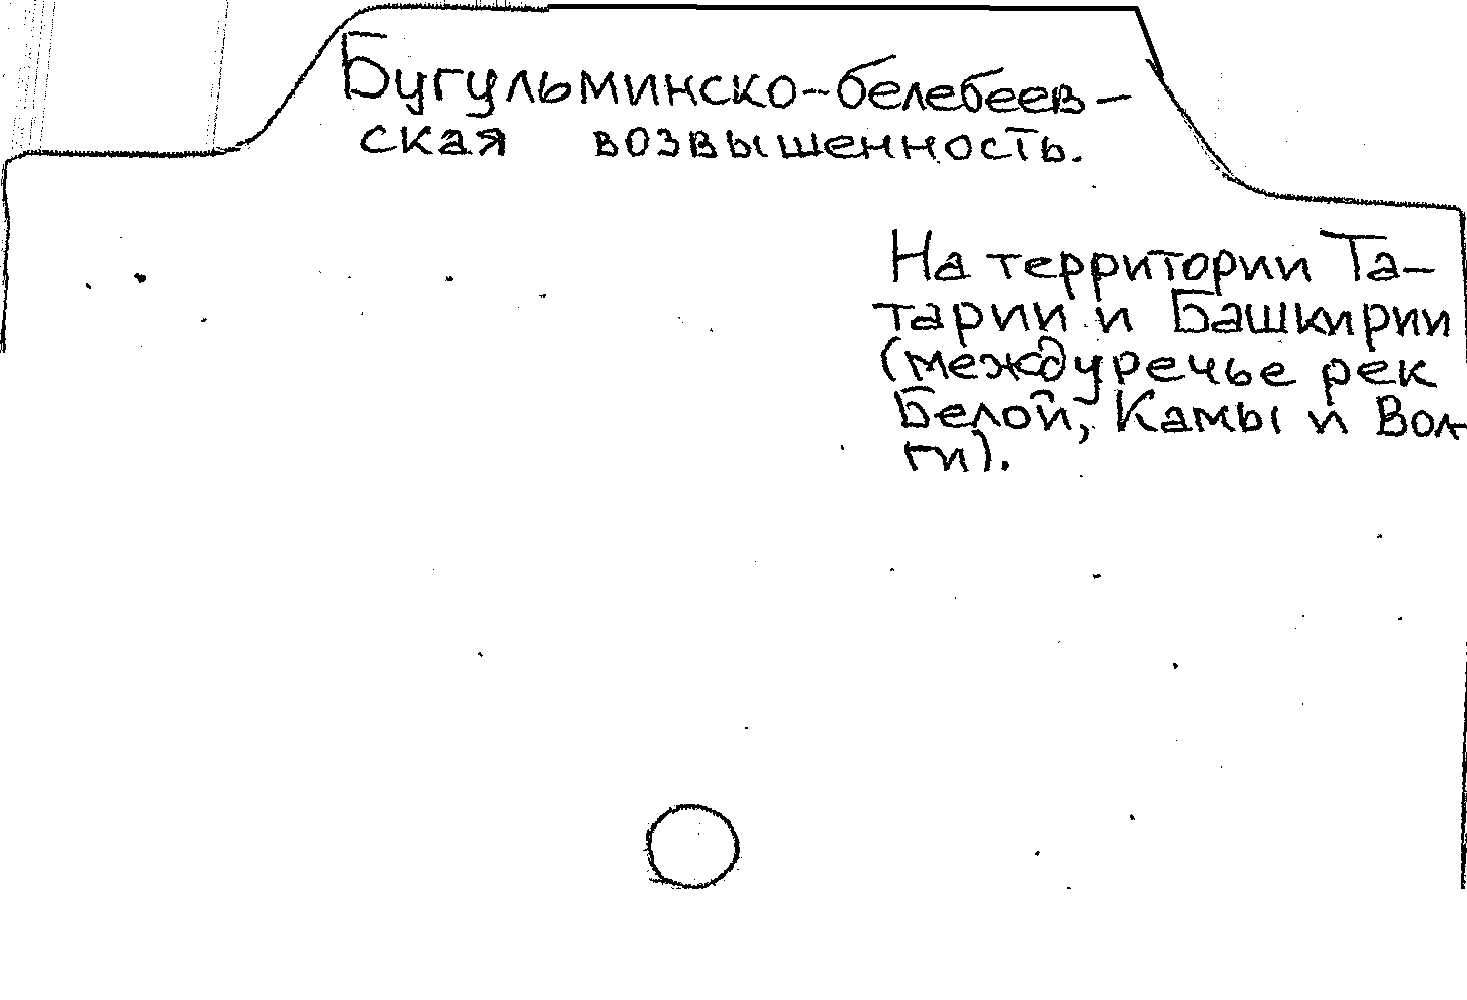 Бугульминско-белебеев-
ская возвышенность.
На территории Та-
тарии и Башкирии
(междуречье рек
Белой, Камы и Вол-
ги).